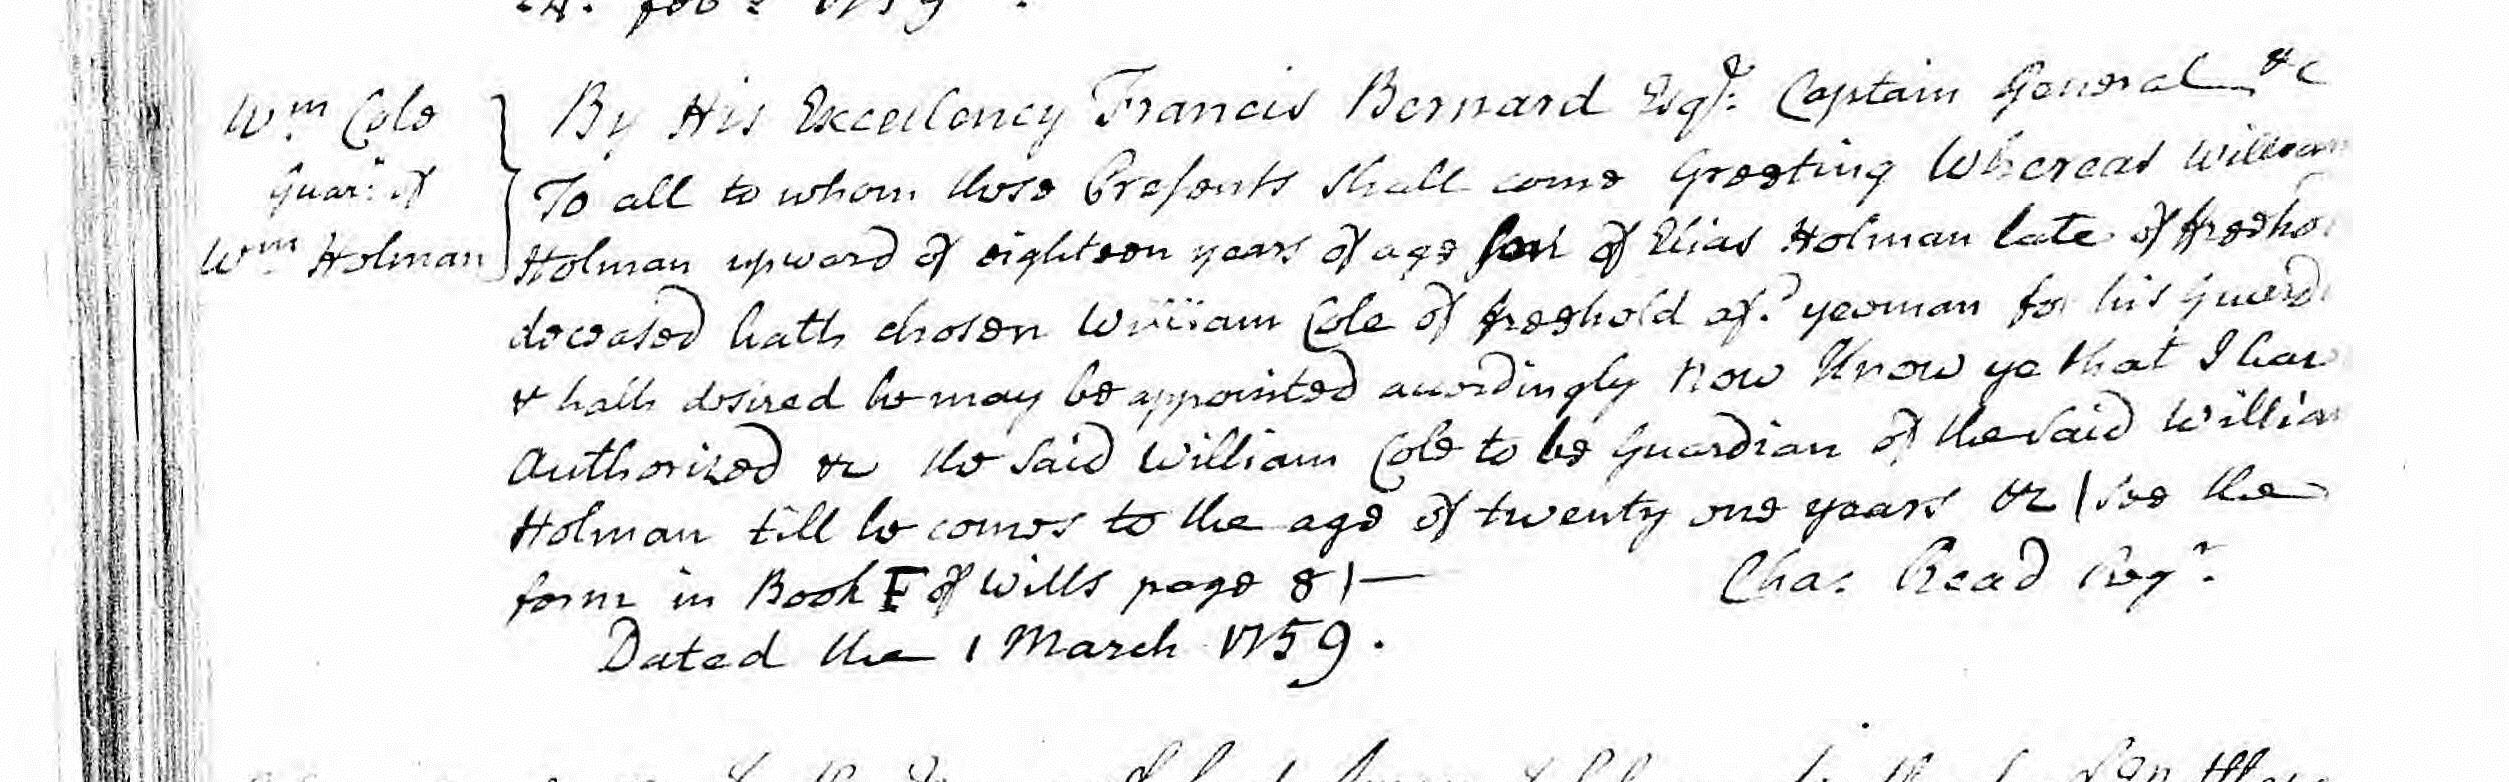 Wm Cole
Guarn of
Wm Holman
By His Excellency Francis Bernard Esqr. Captain General &c
To all to whom these Presents shall come Greeting Whereas William
Holman upward of eighteen years of age son of Elias Holman late of freehol
deceased hath chosen William Cole of freehold afd. yeoman for his Guardi
& hath desired he may be appointed accordingly Now Know ye that I hav
Authorized &c the said William Cole to be Guardian of the said William
Holman till he comes to the age of twenty one years &c (see the
form in Book F of Wills page 8)—
Chas. Read Regr.
Dated the 1 March 1759.